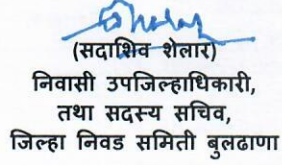 (सदाशिव शेलार)
निवासी उपजिल्हाधिकारी,
तथा सदस्य सचिव,
जिल्हा निवड समिती बुलढाणा